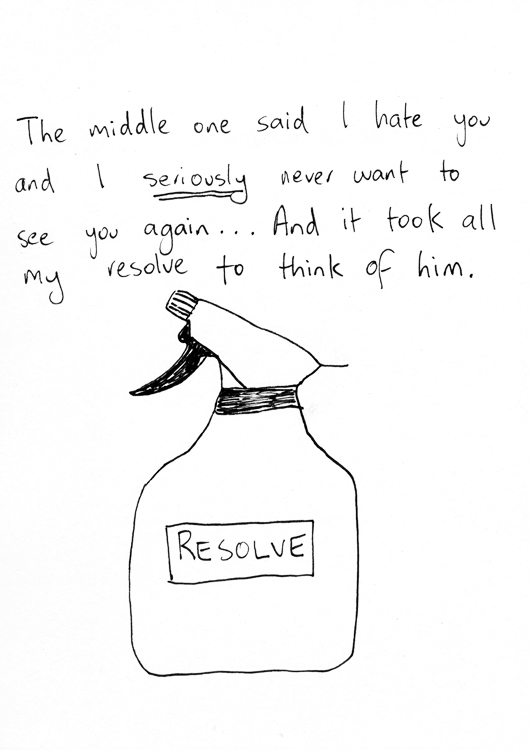 The middle one said I hate you
and I seriously never want to
see you again... And it took all
my resolve to think of him.
RESOLVE